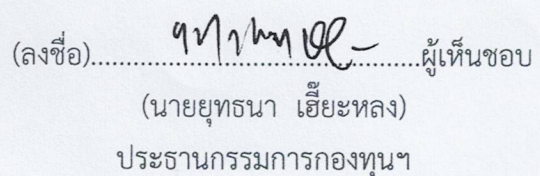 (ลงชื่อ)......................................................ผู้เห็นชอบ
(นายยุทธนา เฮี๊ยะหลง)
ประธานกรรมการกองทุนฯ